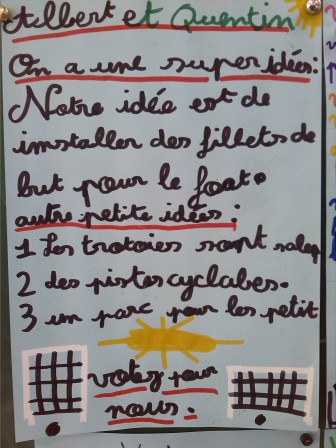 Albert et Quentin
On a une super idées:
Notre idée est de
installer des fillets de
but pour le foot.
autre petite idées :
1 Les trotoies sont salep
2 des pistes cyclabes.
3 un parc pour les petit
votez pour
nous.